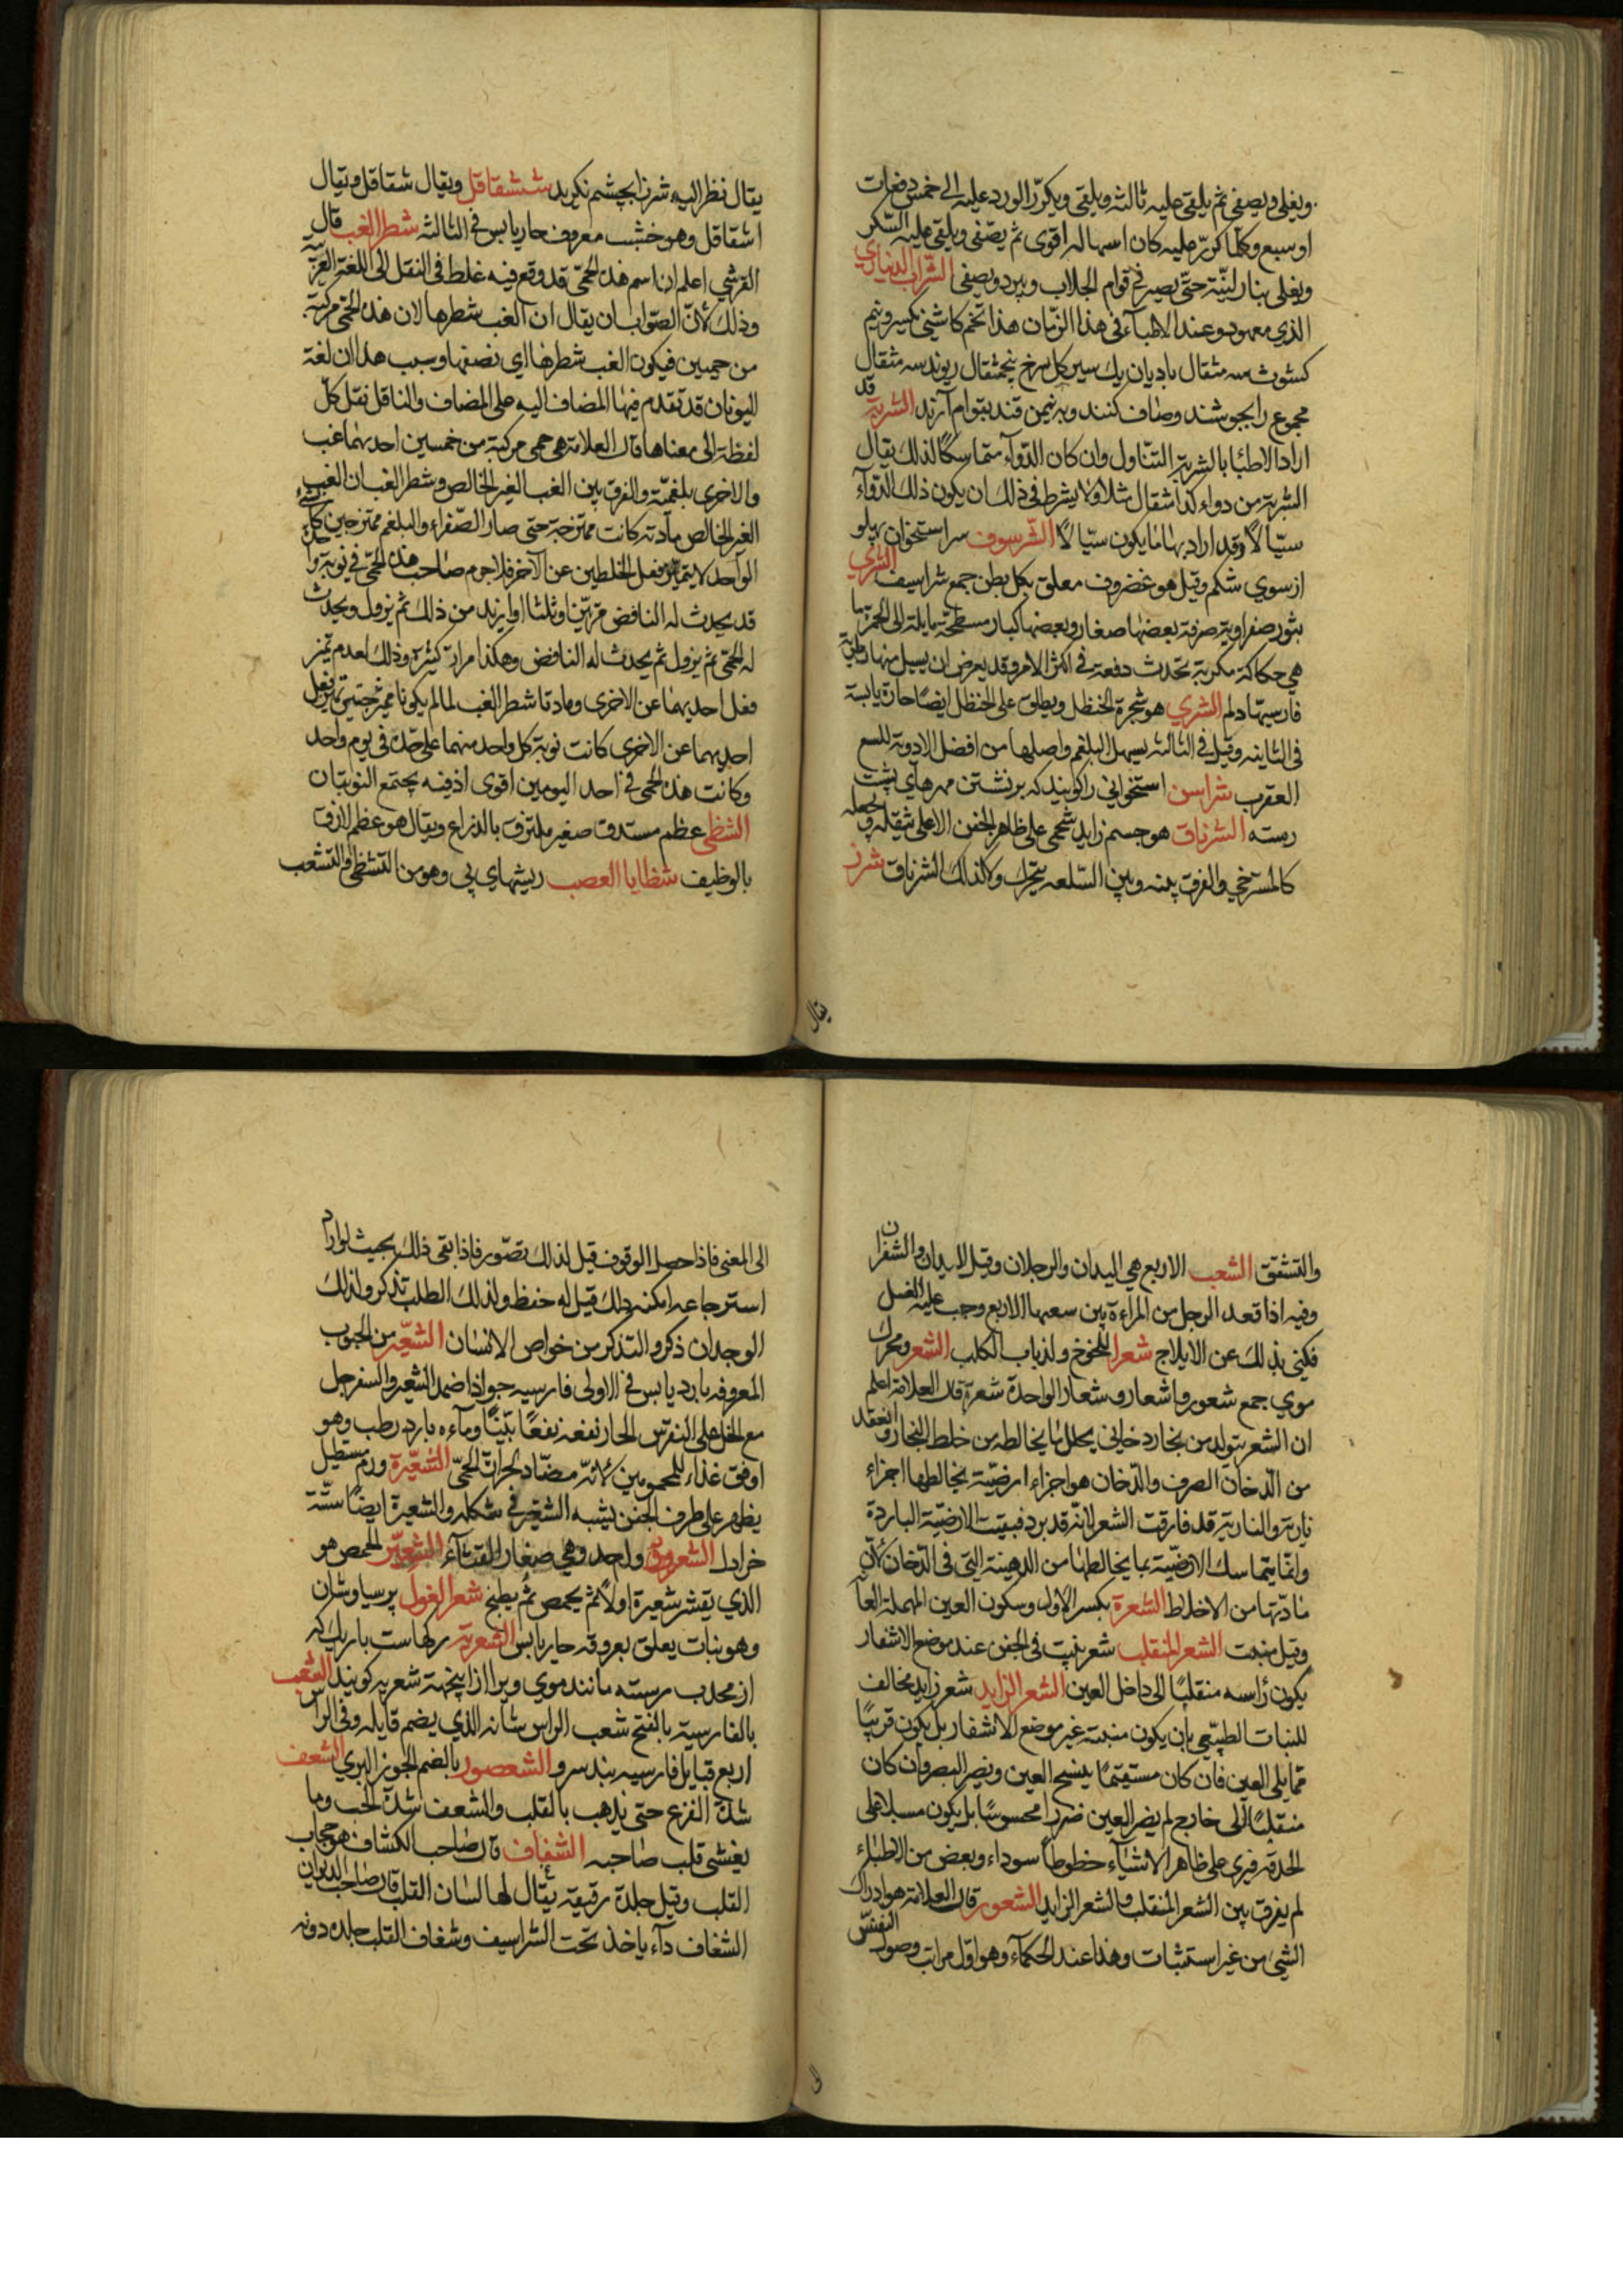 ويغلى ويصفى ثم يلقى عليه ثالثه ويلقى ويكرّر الورد عليه الى خمس دفعات
او سبع وكلما كرّر عليه كان اسهاله اقوى ثم يصفى ويلقى عليه السّكر
ويغلى بنار لينّة حتّى يصير فى قوام الجلاب ويبرد ويصفى الشّراب الديناري
الذي معهود عند الاطباء فى هذا الزّمان هذا تخم كاشنى نكسير ونيم
كشوث سه مثقال باديان يك سير كل سرخ پنجمثقال ريوند سه مثقال
مجموع را بجوشند وصاف كنند وبه نيمن قند بقوام آرند الشربة قد
اراد الاطبّا بالشربة التنّاول وان كان الدّواء متماسكًا لذلك يقال
الشربة من دواء كذا مثقال مثلا ولا يشرط فى ذلك ان يكون ذلك الدّواء
سيّالًا وقد اراد بها ما يكون سيّالًا الشّرسوف سر استخوان پهلو
از سوي شكم وقيل هو غضروف معلق بكل بطن جمع شراسيف الشري
بثور صفراوية بعضها صغار وبعضها كبار مسطحة مايلة الى الحمرة ما
هي حكاكة مكربة تحدث دفعة فى اكثر الامر وقد يعرض ان يسيل منها رطوبة
فارسيتها دلم الشري هو شجرة الحنظل ويطلق على الحنظل ايضًا حارّ يابسة
فى الثانيه وقيل فى الثالثه يسهل البلغم واصلها من افضل الادوية للسع
العقرب شراسن استخواني را كويند كه بر نشتن مهرهاي پشت
رسته الشرناق هو جسم زايد شحمى على ظاهر الجفن الاعلى يثقله ويجعله
كالمسترخي والفرق بينه وبين السّلعه يتحرك ولا كذلك الشرناق شرز
يقال
يقال نظر اليه شرزا بچشم نكريد ششقاقل ويقال شقاقل ويقال
اشقاقل وهو خشب معروف حار يابس فى الثالثه شطر الغب قال
القرشي اعلم ان اسم هذه الحمّى قد وقع فيه غلط فى النقل الى اللغة العربيّة
وذلك لانّ الصّواب ان يقال ان الغب شطرها لان هذه الحمّى مركبة
من حميين فيكون الغب شطرها اي نصفها وسبب هذا ان لغة
اليونان قد تقدم فيها المضاف اليه على المضاف والناقل نقل كلّ
لفظة الى معناها قال العلامة هى حمى مركبة من خمسين احديهما غب
والاخرى بلغميّة والفرق بين الغب الغير الخالص وشطر الغب ان الغب
الغير الخالص مادته كانت ممتزجة حتى صار الصّفراء والبلغم ممتزجين كالشئ
الواحد لا يتميز فعل الخلطين عن الآخر فلاجرم صاحب هذه الحمّى فى نوبة واحدة
قد يحدث له النافض مرّتين او ثلثا او ازيد من ذلك ثم يزول ويحدث
له الحمّى ثم يزول ثم يحدث له النافض وهكذا مرارًا كثيرة وذلك لعدم تميز
فعل احديهما عن الاخرى ومادتا شطر الغب لما لم يكونا ممتزجتين تميز فعل
احديهما عن الاخرى كانت نوبة كل واحد منهما على حدة فى يوم واحد
وكانت هذه الحمى فى احد اليومين اقوى اذ فيه يجتمع النوبتان
الشظى عظم مستدق صغير ملتزق بالذراع ويقال هو عظم لازق
بالوظيف شظايا العصب ريشهاي پى وهو من التشظى والتشعب
والتشقق الشعب الاربع هي اليدان والرجلان وقيل اليدان والشفران
وفيه اذا قعد الرجل من المراءة بين شعبها الاربع وجب عليه الغسل
فكنى بذلك عن الايلاج شعرا للخوخ ولذباب الكلب الشعر ومحرك
موي جمع شعور واشعار وشعار الواحدة شعرة قال العلامة اعلم
ان الشعر يتولد من بخار دخانى يحلل ما يخالطه من خلط البخار وانعقد
من الدّخان الصرف والدّخان هو اجزاء ارضيّة يخالطها اجزاء
نارية والنارية قد فارقت الشعر لانّه قد برد فبقيت الارضيّة الباردة
وانّما يتماسك الارضيّة بما يخالطها من الدهينة التى فى الدّخان لانّ
مادّتها من الاخلاط الشعرة بكسر الاول وسكون العين المهملة العانة
وقيل منبت الشعر المنقلب شعر ينبت فى الجفن عند موضع الاشفار
يكون رأسه منقلبًا الى داخل العين الشعر الزايد شعر زايد مخالف
للنبات الطبيّعى بان يكون منبته غير موضع الاشفار بل يكون قريبًا
ممّا يلى العين فان كان مستقيمًا ينسج العين ويضر البصر وان كان
منقلبًا الى خارج لم يضر العين ضررا محسوسًا بل يكون مسبلا على
الحدقة فيرى على ظاهر الاشيآء خطوطاً سوداء وبعض من الاطباء
لم يفرق بين الشعر المنقلب والشعر الزايد الشعور قال العلامة هو ادراك
الشئ من غير استثبات وهذا عند الحكمآء وهو اوّل مراتب وصول النفس
الى
الى المعنى فاذا حصل الوقوف قيل لذلك تصوّر فاذا بقى ذلك بحيث لو اراد
استرجاعه امكنه ذلك قيل له حفظ ولذلك الطلب تذكر ولذلك
الوجدان ذكر والتذكر من خواص الانسان الشعّير من الحبوب
المعروفه بارد يابس فى الاولى فارسيه جو اذا ضمد الشعير والسفرجل
مع الخل على النقرس الحار نفعه نفعًا بيّنًا وماءه بارد رطب وهو
اوفق غذاء للمحمومين لانّه مضّاد لحرارة الحمّى الشعيّرة ورم مستطيل
يظهر على طرف الجفن يشبه الشعّير فى شكله والشعيرة ايضًا ستّة
خرادل الشعرورة واحد وهي صغار القثآء الشعيّر المحمص هو
الذي يقشر شعيرة اولًا ثم يحمص ثم يطبخ شعر الغول پرسياوشان
وهو بنات يعلق بعروقه حار يابس الشعرية ركهاست باريك كه
از محدب رسته مانند موي ويرا ازاينجهة شعريه كويند الشعب
بالفارسية بالفتح شعب الراس شانه الذي يضم قبايله وفى الراس
اربع قبايل فارسيه بند سرو الشعصور بالضم الجوز البري الشعف
شدة الفزع حتى يذهب بالقلب والشعف شدة الحب وما
يغشى قلب صاحبه الشغاف قال صاحب الكشاف هو حجاب
القلب وقيل جلدة رقيقة يقال لها لسان القلب قال صاحب الديوان
الشغاف دآء ياخذ تحت الشراسيف وشغاف القلب جلده دونه